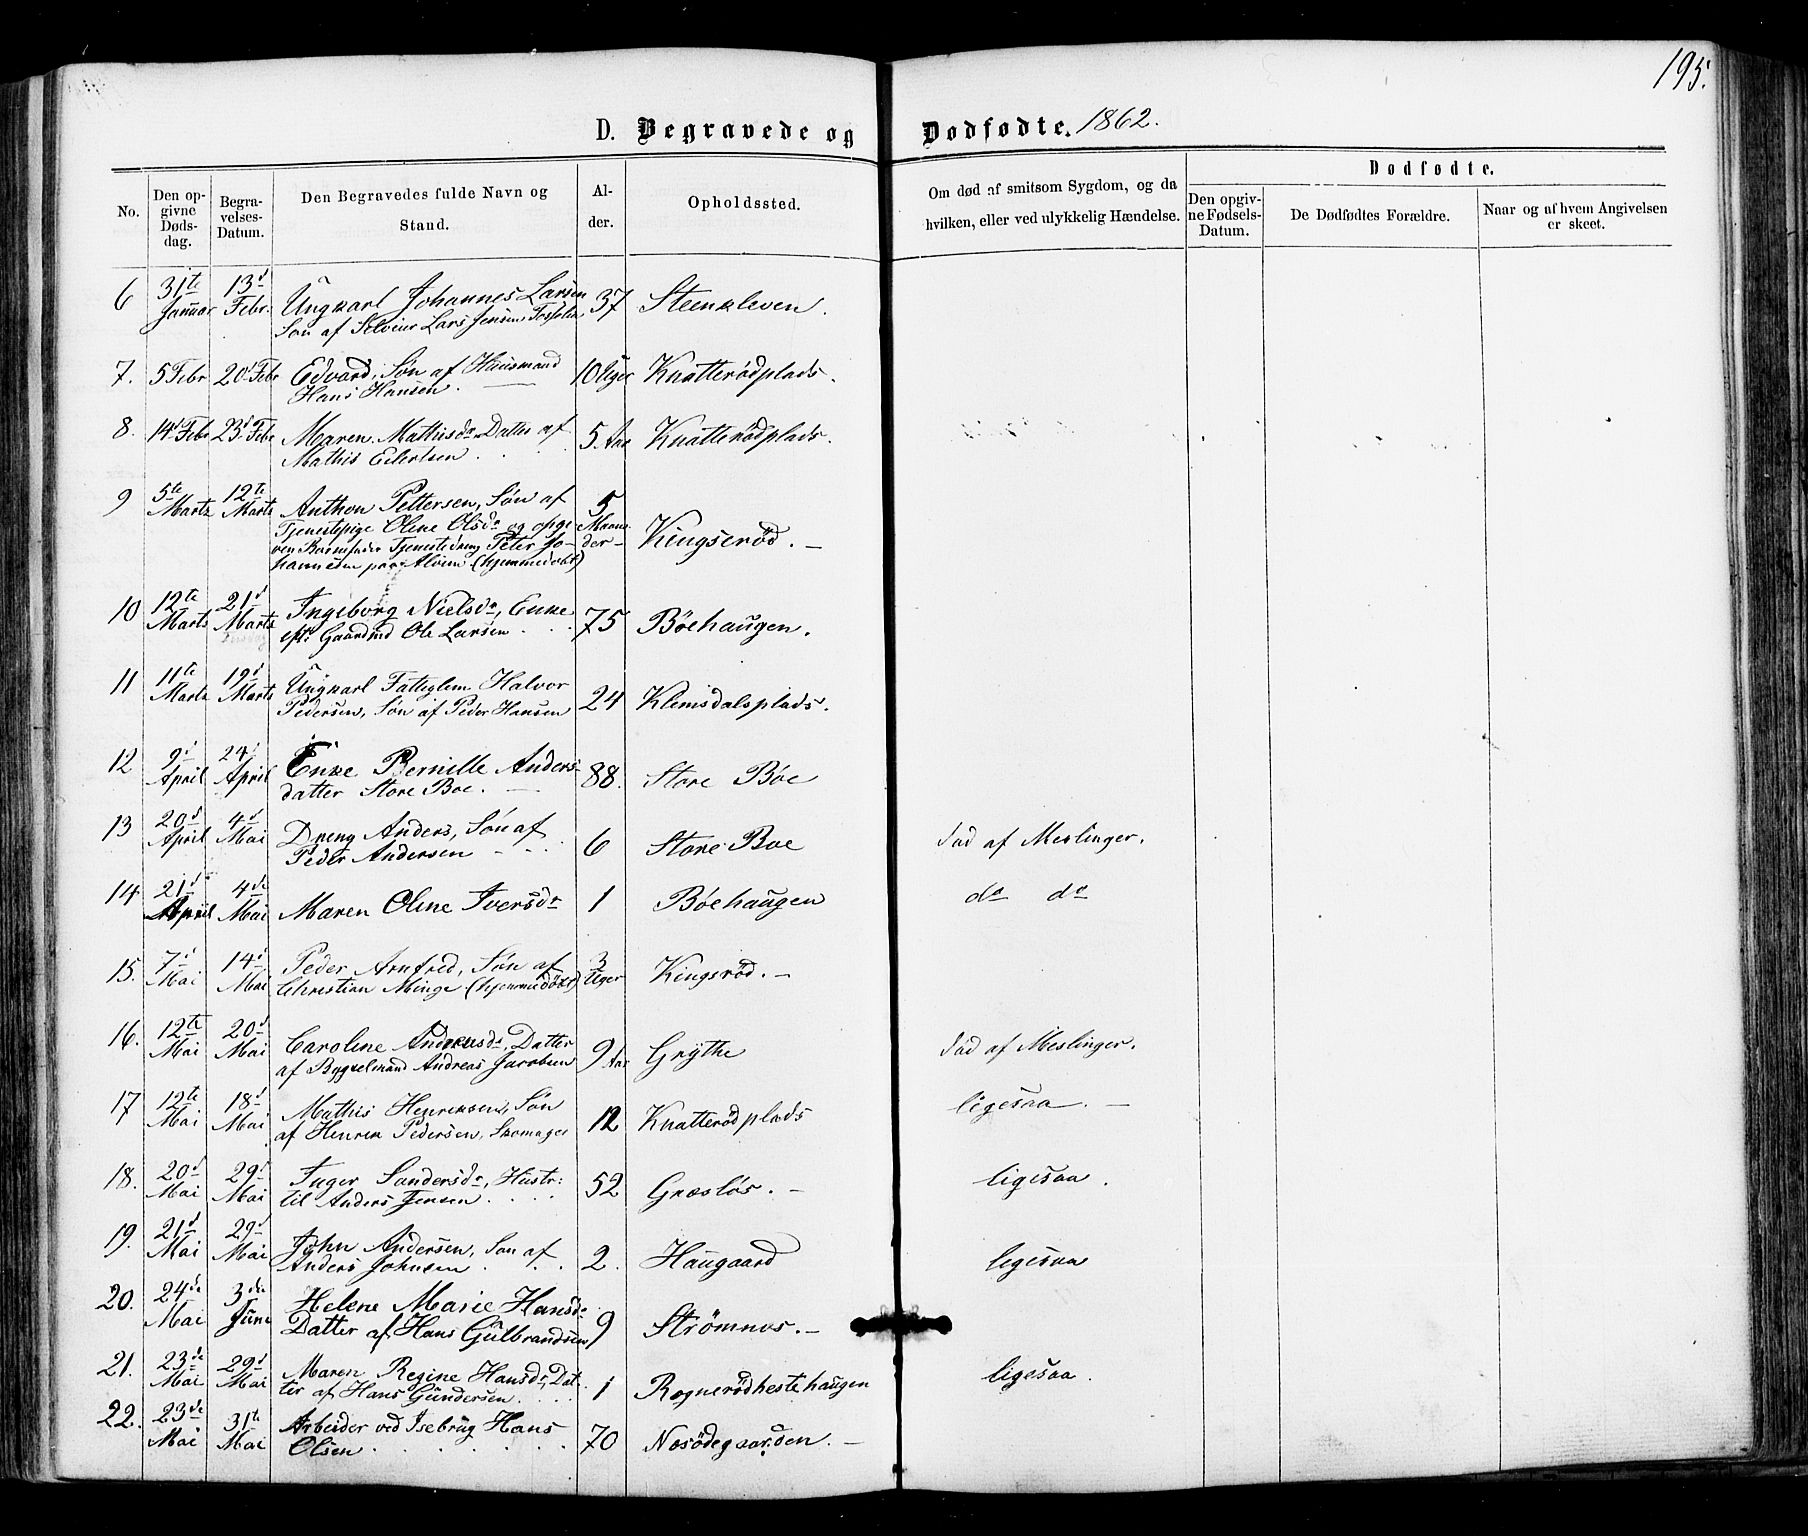 195.
D. Begravede og Dødfødte. 1862.
No.
Den opgivne Dødsdag.
Begravelses-Datum.
Den Begravedes fulde Navn og Stand.
Alder.
Opholdssted.
Om død af smitsom Sygdom, og da hvilken, eller ved ulykkelig Hændelse.
Dødfødte.
Den opgivne Fødsels-Datum.
De Dødfødtes Forældre.
Naar og af hvem Angivelsen er skeet.
6 31te Januar 13d Febr. Ungkarl Johannes Larsen 37 Steenkleven.
Søn af Selveier Lars Jensen
7. 5 Febr 20d Febr Edvard, Søn af Huusmand 10 Uger Knatterødplads.
Hans Hansen.
8. 14d Febr 23d Febr Maren Mathisdr Datter af 5 Aar Knatterødplads.
Mathis Eilertsen
9 5te Marts 12te Marts Anthon Pettersen, Søn af 5 Maaneder Kingserød.
Tjenestepige Oline Olsdr og opgi
ven Barnefader Tjenestedreng Peter Jo-
hannesen paa Alvim (hjemmedøbt)
10 12te Marts 21d Marts Ingeborg Nielsdr, Enke 75 Böehaugen.
eft: Gaardmd Ole Larsen
11 11te Marts 19d Marts Ungkarl Fattiglem Halvor 24 Klemsdalsplads.
Pedersen, Søn af Peder Hansen
12 9d April 24d April Enke Pernille Anders- 88. Store Böe
datter Store Boe.
13 20d April 4d Mai Dreng Anders, Søn af 6 Store Boe død af Meslinger.
Peder Andersen
14 21d April 4de Mai Maren Oline Iversdr 1 Böehaugen do do
15. 7d Mai 14d Mai Peder Arnfred, Søn af 3 Uger Kingsrød.
Christian Minge (hjemmedöbt)
16. 12te Mai 20d Mai Caroline Andreasdr, Datter 9 Aar Grythe død af Meslinger.
af Bygselmand Andreas Jacobsen
17 12te Mai 18d Mai Mathis Henriksen, Søn 12 Knatterødplads ligesaa.
af Henrik Pedersen, Skomager
18. 20d Mai 29d Mai Inger Sandersdr, Hustr: 52 Græsløs. ligesaa.
til Anders Jensen
19. 21d Mai 29d Mai John Andersen, Søn af 2. Haugaard ligesaa
Anders Johnsen
20. 24de Mai 3die Juni Helene Marie Hansdr 9 Strömnes.
Datter af Hans Gulbrandsen
21. 23de Mai 29d Mai Maren Regine Hansdr, Dat- 1 Rognerødhestehaugen ligesaa.
ter af Hans Gundersen
22. 23de Mai 31te Mai Arbeider ved Isebrug Hans 70 Næsödegaarden.
Olsen